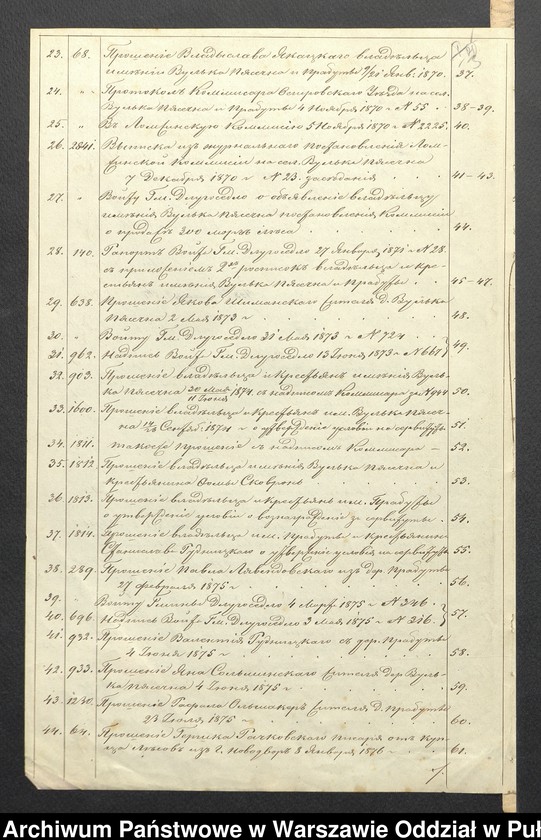 23. 68. Прошеніе Владыслава Якацкаго владѣльца
имѣнія Вулька Пясечна и Прабуты 9/21 Янв. 1870. 37.
24. " Протоколъ Коммисара Островскаго Уѣзда на сел.
Вулька Пясечна и Прабуты 4 Ноября 1870 г N 55 . 38-39.
25. " Въ Ломжинскую Коммисію 5 Ноября 1870 г. N 2225. 40.
26. 2841. Выписка изъ журнальнаго постановленія Лом-
жинской Коммисіи на сел. Вулька Пясечна
7 Декабря 1870 г N 23. засѣданія 41-43.
27. " Войту Гм. Длугоседло о объявленіе владѣльцу
имѣнія Вулька Пясечна постановленія Коммисіи
о продажѣ 200 моргъ лѣса 44.
28. 140. Рапортъ Войта Гм. Длугоседло 27 Января 1871 г N 28.
съ приложеніемъ 2хъ росписокъ владѣльца и кре-
стьянъ имѣнія Вулька Пясечна и Прабуты . 45-47.
29. 638. Прошеніе Якова Шиманскаго жителя д. Вулька
Пясечна 2 Мая 1873 г 48.
30. " Войту Гм. Длугоседло 31 Мая 1873 г N 724 49.
31. 962. Надпись Войта Гм. Длугоседло 13 Іюня 1873 г N 661
32. 903. Прошеніе владѣльца и крестьянъ имѣнія Вуль-
ка Пясечна 30 Мая/11 Іюня 1874 съ надписью Коммисара за N 944 50.
33. 1600. Прошеніе владѣльца и крестьянъ им. Вулька Пясеч-
на Сентяб. 1874 г о утвержденіе условія на сервитуты 51.
34. 1811. такоеже прошеніе съ надписью Коммисара 52.
35. 1812. Прошеніе владѣльца имѣнія Вулька Пясечна и
крестьянина Ѳомы Сковронъ 53.
36. 1813. Прошеніе владѣльца и крестьянъ им. Прабуты
о утвержденіе условія о вознагражденіе за сервитуты 54.
37. 1814. Прошеніе владѣльца им. Прабуты и крестьянина
Станислава Рудницкаго о утвержденіе условія на сервитуты 55.
38. 289. Прошеніе Павла Левандовскаго изъ дер. Прабуты
27 Февраля 1875 г 56.
39. " Войту Гмины Длугоседло 4 Марта 1875 г N 346 57.
40. 696. Надпись Войта Гм. Длугоседло 3 Мая 1875 г N 216.
41. 932. Прошеніе Валентія Рудницкаго съ дер. Прабуты
4 Іюня 1875 г 58.
42. 933. Прошеніе Яна жителя дер Вуль-
ка Пясечна 4 Іюня 1875 г 59.
43. 1230. Прошеніе жителя д. Прабуты
23 Іюля 1875 г 60.
44. 64. Прошеніе Рачковскаго писаря отъ куп-
ца изъ г. Новодворъ 8 Января 1876 61.
Archiwum Państwowe w Warszawie Oddział w Puł